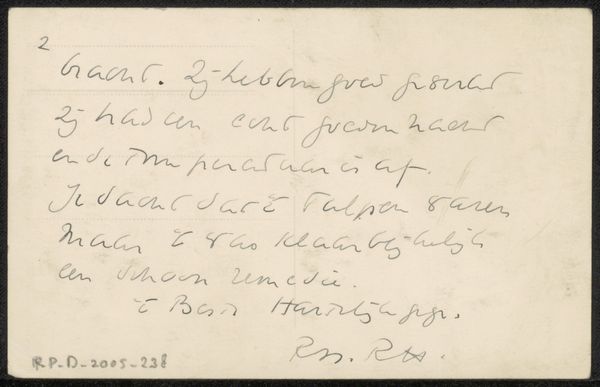 2
bracht. Zij hebben goed gewerkt
Zij had een echt goeden nacht
en de temperatuur is af.
Ik dacht dat 't tulpen waren
Maar 't was klaarblijkelijk
een schoon remedie.
't Beste Hartelijk gegr.
RP-D-2005-238